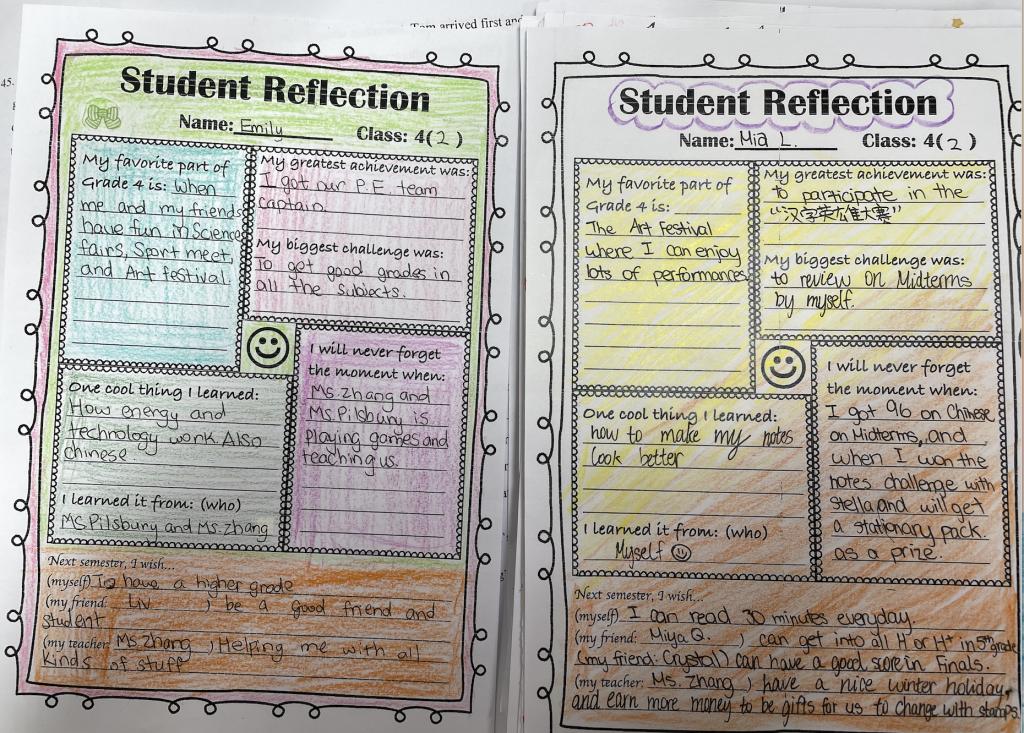 Tom arrived first and
45.
Student Reflection
Name: Emily Class: 4(2)
My favorite part of
Grade 4 is: when
me and my friends
have fun in Science
fairs, Sport meet,
and Art festival.
My greatest achievement was:
I got our P.E team
captain.
My biggest challenge was:
To get good grades in
all the subjects.
One cool thing I learned:
How energy and
technology work. Also
chinese
I learned it from: (who)
MS.Pilsbury and Ms.zhang
I will never forget
the moment when:
MS.zhang and
MS.Pilsbury is
playing games and
teaching us.
Next semester, I wish...
(myself) To have a higher grade
(my friend: Liv ) be a good friend and
student
(my teacher: MS.zhang ) Helping me with all
kinds of stuff
Student Reflection
Name: Mia L. Class: 4(2)
My favorite part of
Grade 4 is:
The Art festival
where I can enjoy
lots of performances
My greatest achievement was:
to participate in the
“汉字英雄大赛”
My biggest challenge was:
to review on Midterms
by myself.
One cool thing I learned:
how to make my notes
look better
I learned it from: (who)
Myself ☺
I will never forget
the moment when:
I got 96 on Chinese
on Midterms, and
when I won the
notes challenge with
Stella and will get
a stationary pack
as a prize.
Next semester, I wish...
(myself) I can read 30 minutes everyday.
(my friend: Miya Q. ) can get into all H or H+ in 5th grade
(my friend: Crystal) can have a good score in Finals.
(my teacher: Ms. Zhang ) have a nice winter holiday,
and earn more money to be gifts for us to change with stamps.